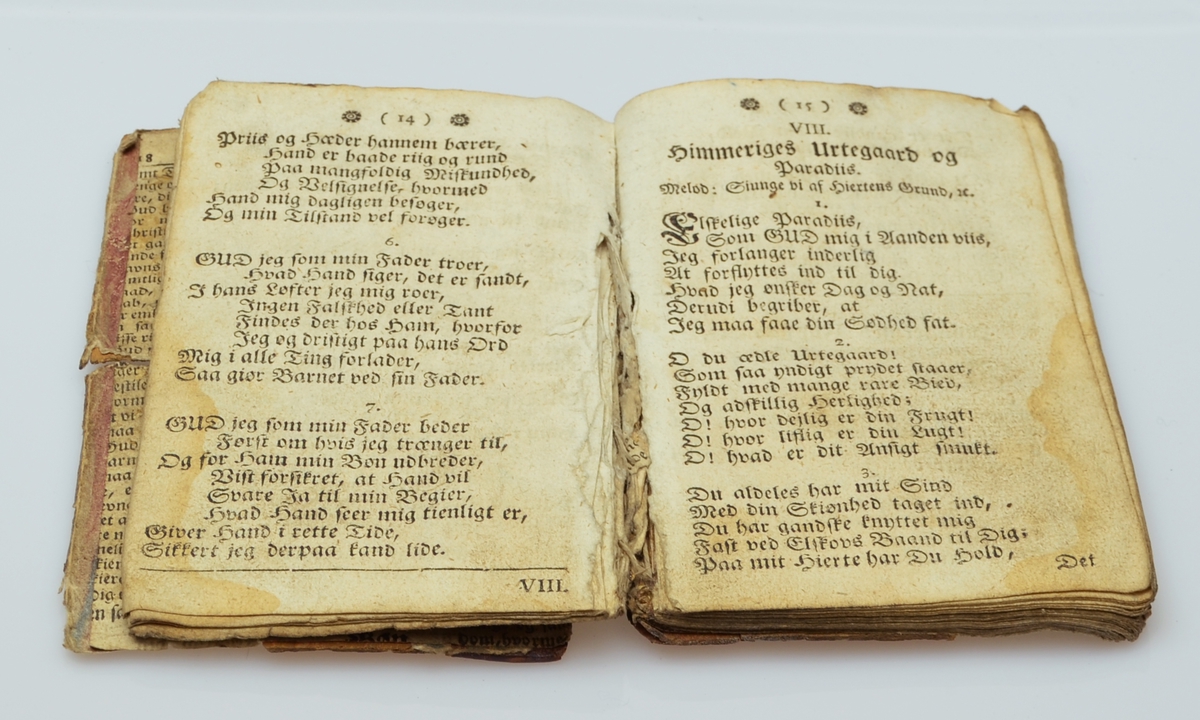 ( 14 )
Priis og Hæder hannem bærer,
Hand er baade riig og rund
Paa mangfoldig Miskundhed,
Og Velsignelse, hvormed
Hand mig dagligen besøger,
Og min Tilstand vel forøger.
6.
GUD jeg som min Fader troer,
Hvad Hand siger, det er sandt,
I hans Løfter jeg mig roer,
Ingen Falskhed eller Tant
Findes der hos Ham, hvorfor
Jeg og dristigt paa hans Ord
Mig i alle Ting forlader,
Saa giør Barnet ved sin Fader.
7.
GUD jeg som min Fader beder
Først om hvis jeg trænger til,
Og for Ham min Bøn udbreder,
Vist forsikret, at Hand vil
Svare Ja til min Begier,
Hvad Hand seer mig tienligt er,
Giver Hand i rette Tide,
Sikkert jeg derpaa kand lide.
VIII.
( 15 )
VIII.
Himmeriges Urtegaard og
Paradiis.
Melod: Siunge vi af Hiertens Grund, ꝛc.
1.
Elskelige Paradiis,
Som GUD mig i Aanden viis,
Jeg forlanger inderlig
At forflyttes ind til dig.
Hvad jeg ønsker Dag og Nat,
Derudi begriber, at
Jeg maa faae din Sødhed fat.
2.
O du ædle Urtegaard!
Som saa yndigt prydet staaer,
Fyldt med mange rare Bied,
Og adskillig Herlighed;
O! hvor dejlig er din Frugt!
O! hvor liflig er din Lugt!
O! hvad er dit Ansigt smukt.
3.
Du aldeles har mit Sind
Med din Skiønhed taget ind,
Du har gandske knyttet mig
Fast ved Elskovs Baand til Dig;
Paa mit Hierte har Du Hold,
Det